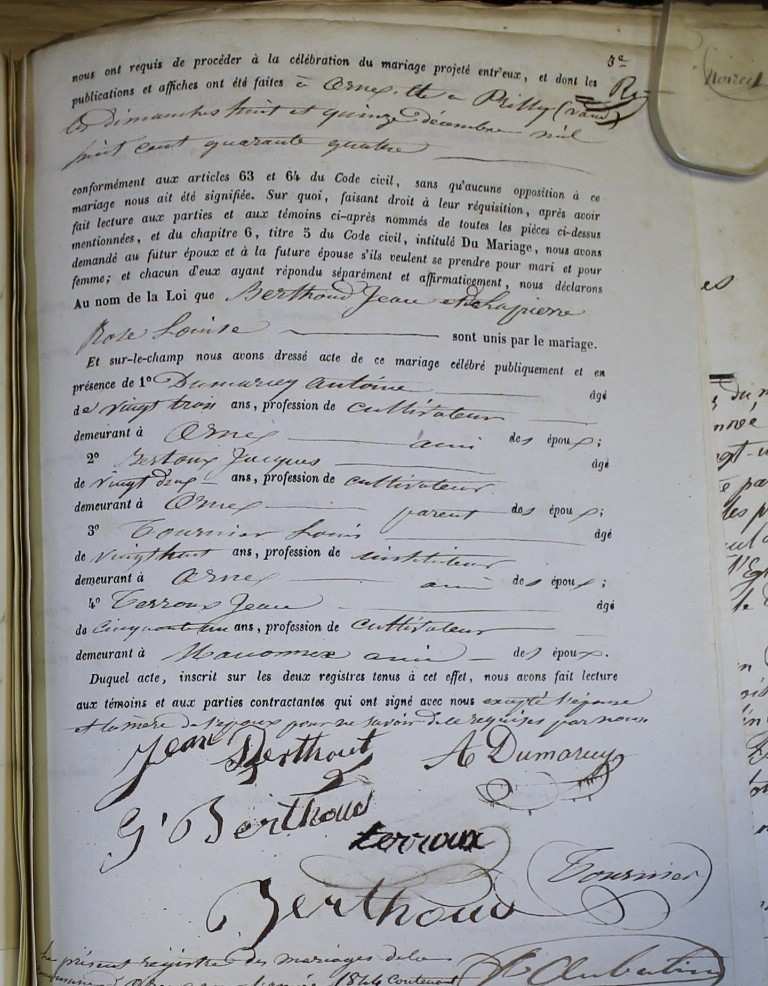 3e
nous ont requis de procéder à la célébration du mariage projeté entr'eux, et dont les
publications et affiches ont été faites à Ornex, et à Prilly (Vaud)
les dimanches huit et quinze décembre mil
huit cent quarante quatre
conformément aux articles 63 et 64 du Code civil, sans qu'aucune opposition à ce
mariage nous ait été signifiée. Sur quoi, faisant droit à leur réquisition, après avoir
fait lecture aux parties et aux témoins ci-après nommés de toutes les pièces ci-dessus
mentionnées, et du chapitre 6, titre 5 du Code civil, intitulé Du Mariage, nous avons
demandé au futur époux et à la future épouse s'ils veulent se prendre pour mari et pour
femme; et chacun d'eux ayant répondu séparément et affirmaticement, nous déclarons
Au nom de la Loi que Berthoud Jean et Delapierre
Rose Louise sont unis par le mariage.
Et sur-le-champ nous avons dressé acte de ce mariage célébré publiquement et en
présence de 1° Dumarey Antoine âgé
de vingt trois ans, profession de cultivateur
demeurant à Ornex ami des époux;
2° Jacques âgé
de vingt deux ans, profession de cultivateur
demeurant à Ornex parent des époux;
3° Tournier Louis âgé
de vingt huit ans, profession de instituteur
demeurant à Ornex ami des époux;
4° Terroux Jean âgé
de cinquante un ans, profession de cultivateur
demeurant à ami des époux.
Duquel acte, inscrit sur les deux registres tenus à cet effet, nous avons fait lecture
aux témoins et aux parties contractantes qui ont signé avec nous excepté l'épouse
et la mère de l'époux pour ne savoir de ce requises par nous
Jean Berthout A Dumarey
G' Berthoud
terroux
Tournier
Berthoud
Le présent registre des mariages de la
1844 contenant